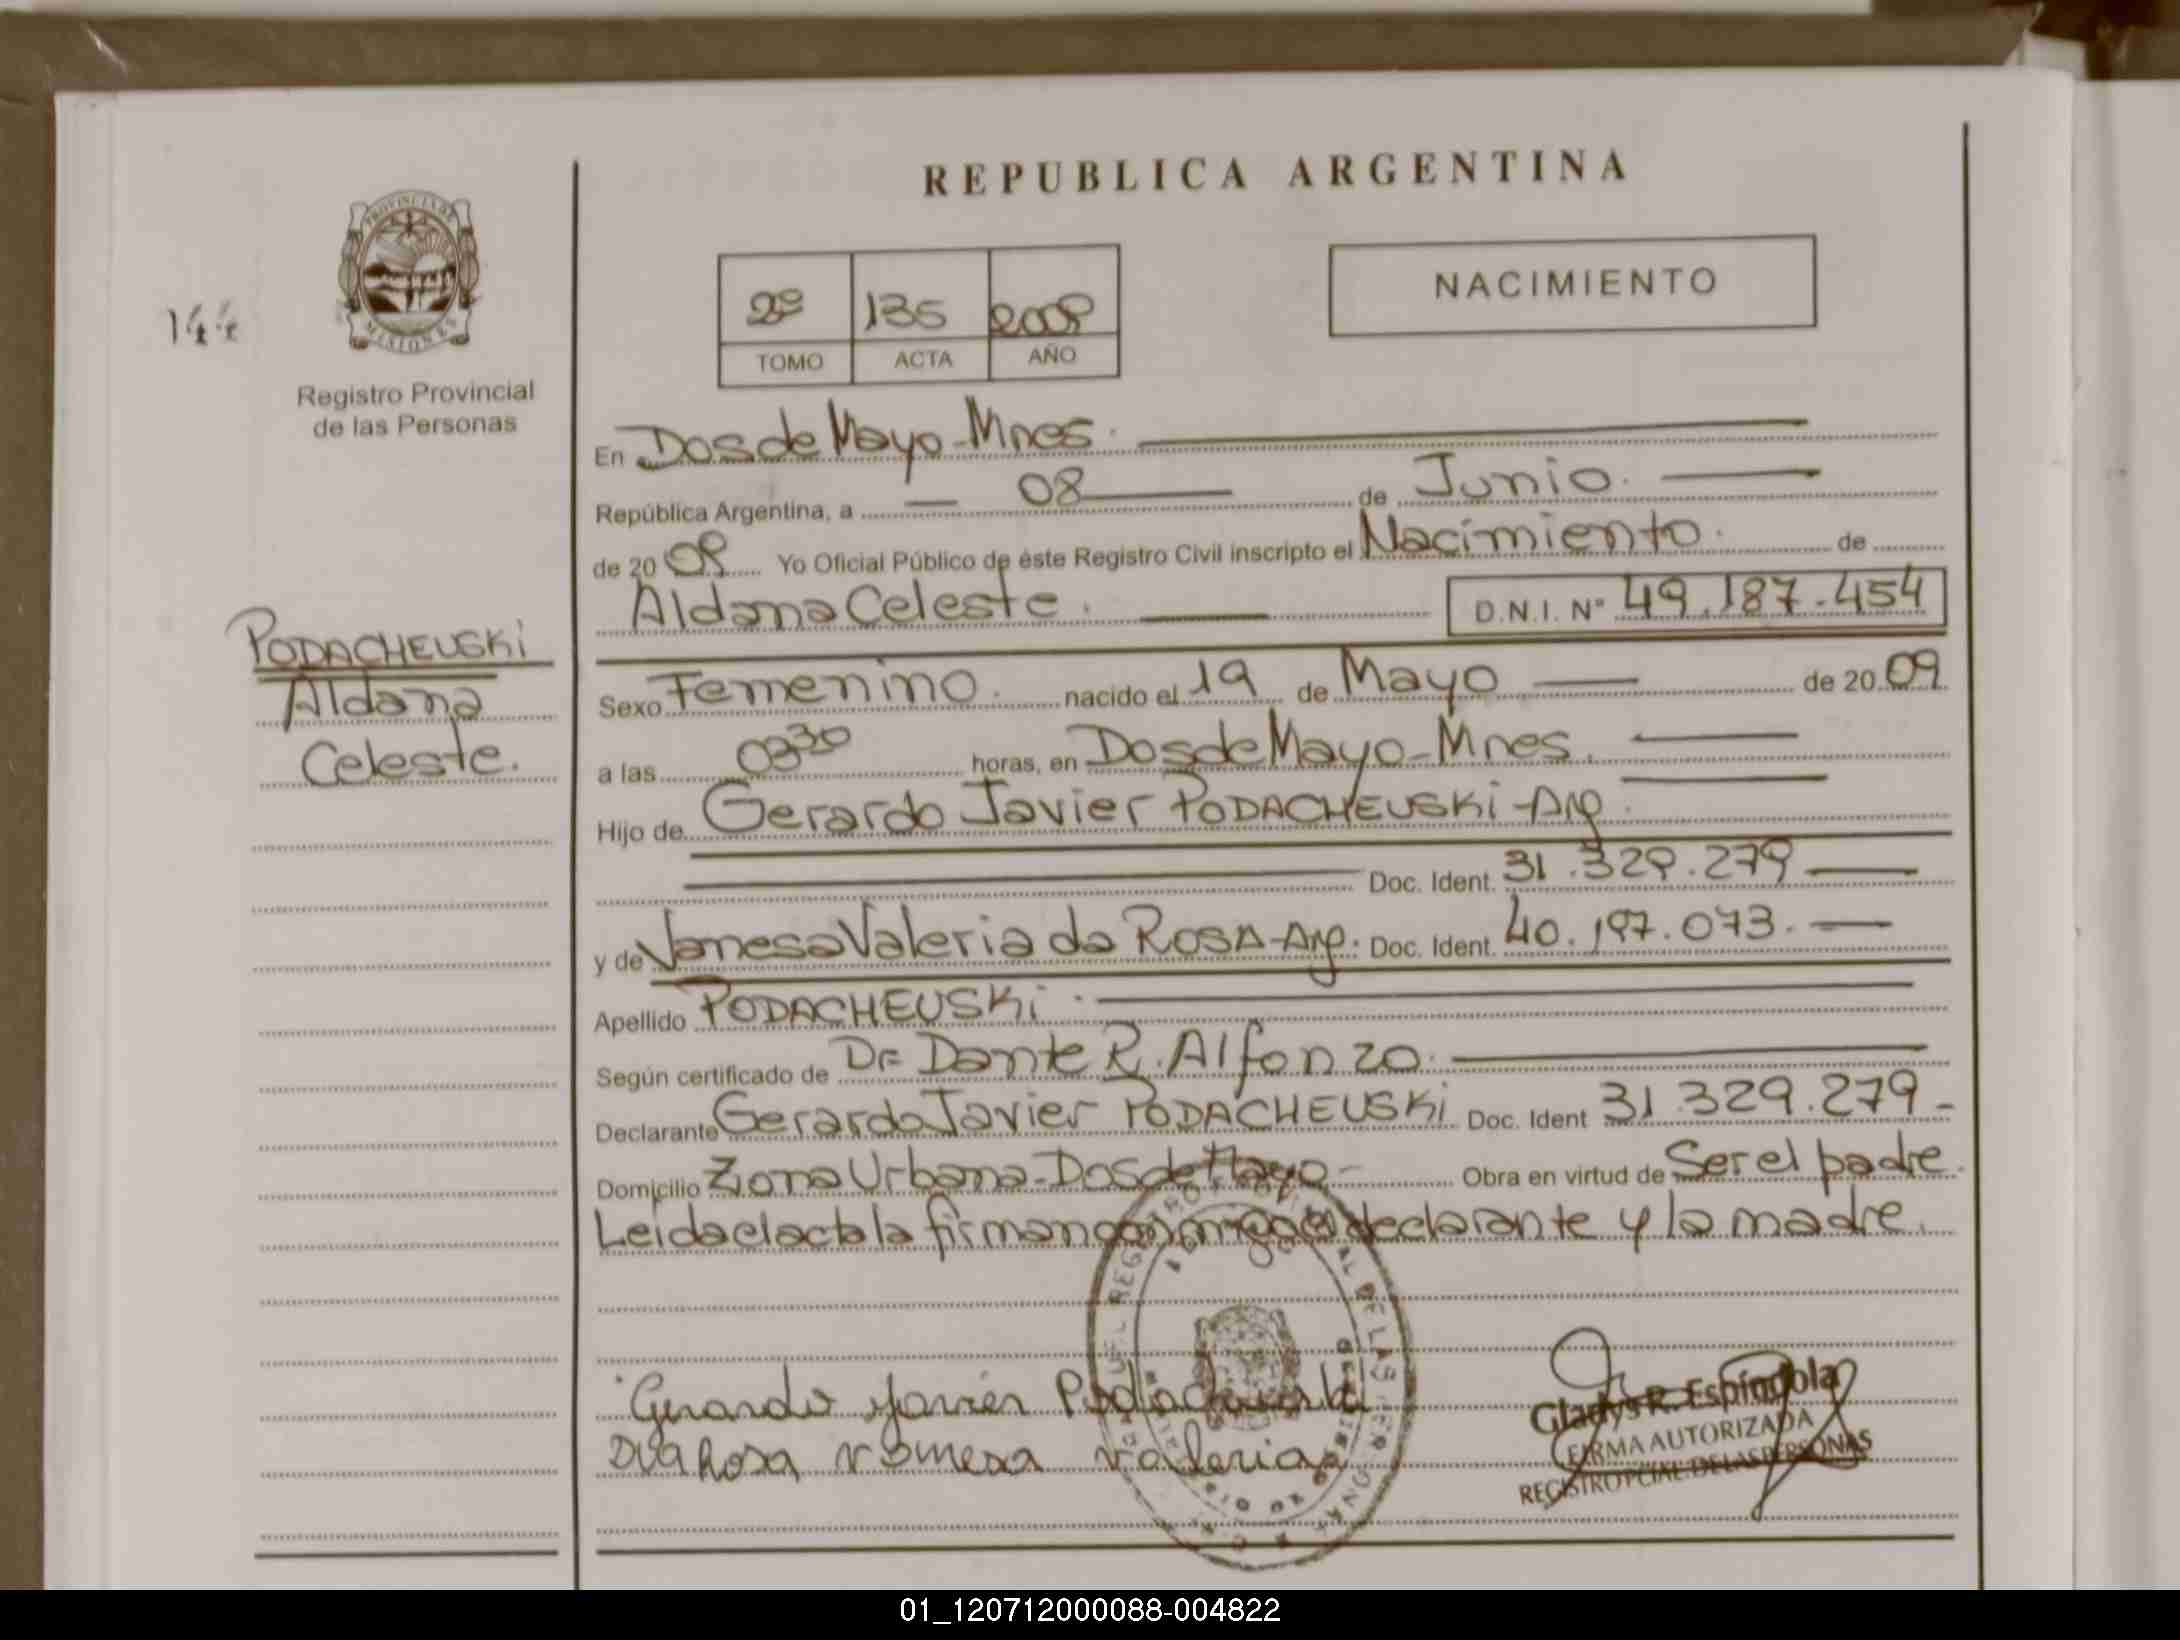 REPUBLICA ARGENTINA
PROVINCIA DE
MISIONES
144
Registro Provincial
de las Personas
2º 135 2009
TOMO ACTA AÑO
NACIMIENTO
En Dos de Mayo-Mnes.
República Argentina, a 08 de Junio.
de 2009 Yo Oficial Público de éste Registro Civil inscripto el Nacimiento. de
Aldana Celeste. D.N.I. Nº 49.187.454
PODACHEUSKi
Aldana
Celeste.
Sexo Femenino. nacido el 19 de Mayo de 2009
a las 0330 horas, en Dos de Mayo-Mnes.
Hijo de Gerardo Javier PODACHEUSKi-Arg.
Doc. Ident. 31.329.279
y de Vanesa Valeria da ROSA-Arg. Doc. Ident. 40.197.073.
Apellido PODACHEUSKi.
Según certificado de Dr Dante R. Alfonzo.
Declarante Gerardo Javier PODACHEUSKi Doc. Ident 31.329.279-
Domicilio Zona Urbana-Dos de Mayo- Obra en virtud de Ser el padre.
Leida el acta la firman conmigo el declarante y la madre.
Gerardo Javier
Rosa Vanesa Valeria
Gladys R. Espíndola
FIRMA AUTORIZADA
REGISTRO PCIAL. DE LAS PERSONAS
01_120712000088-004822